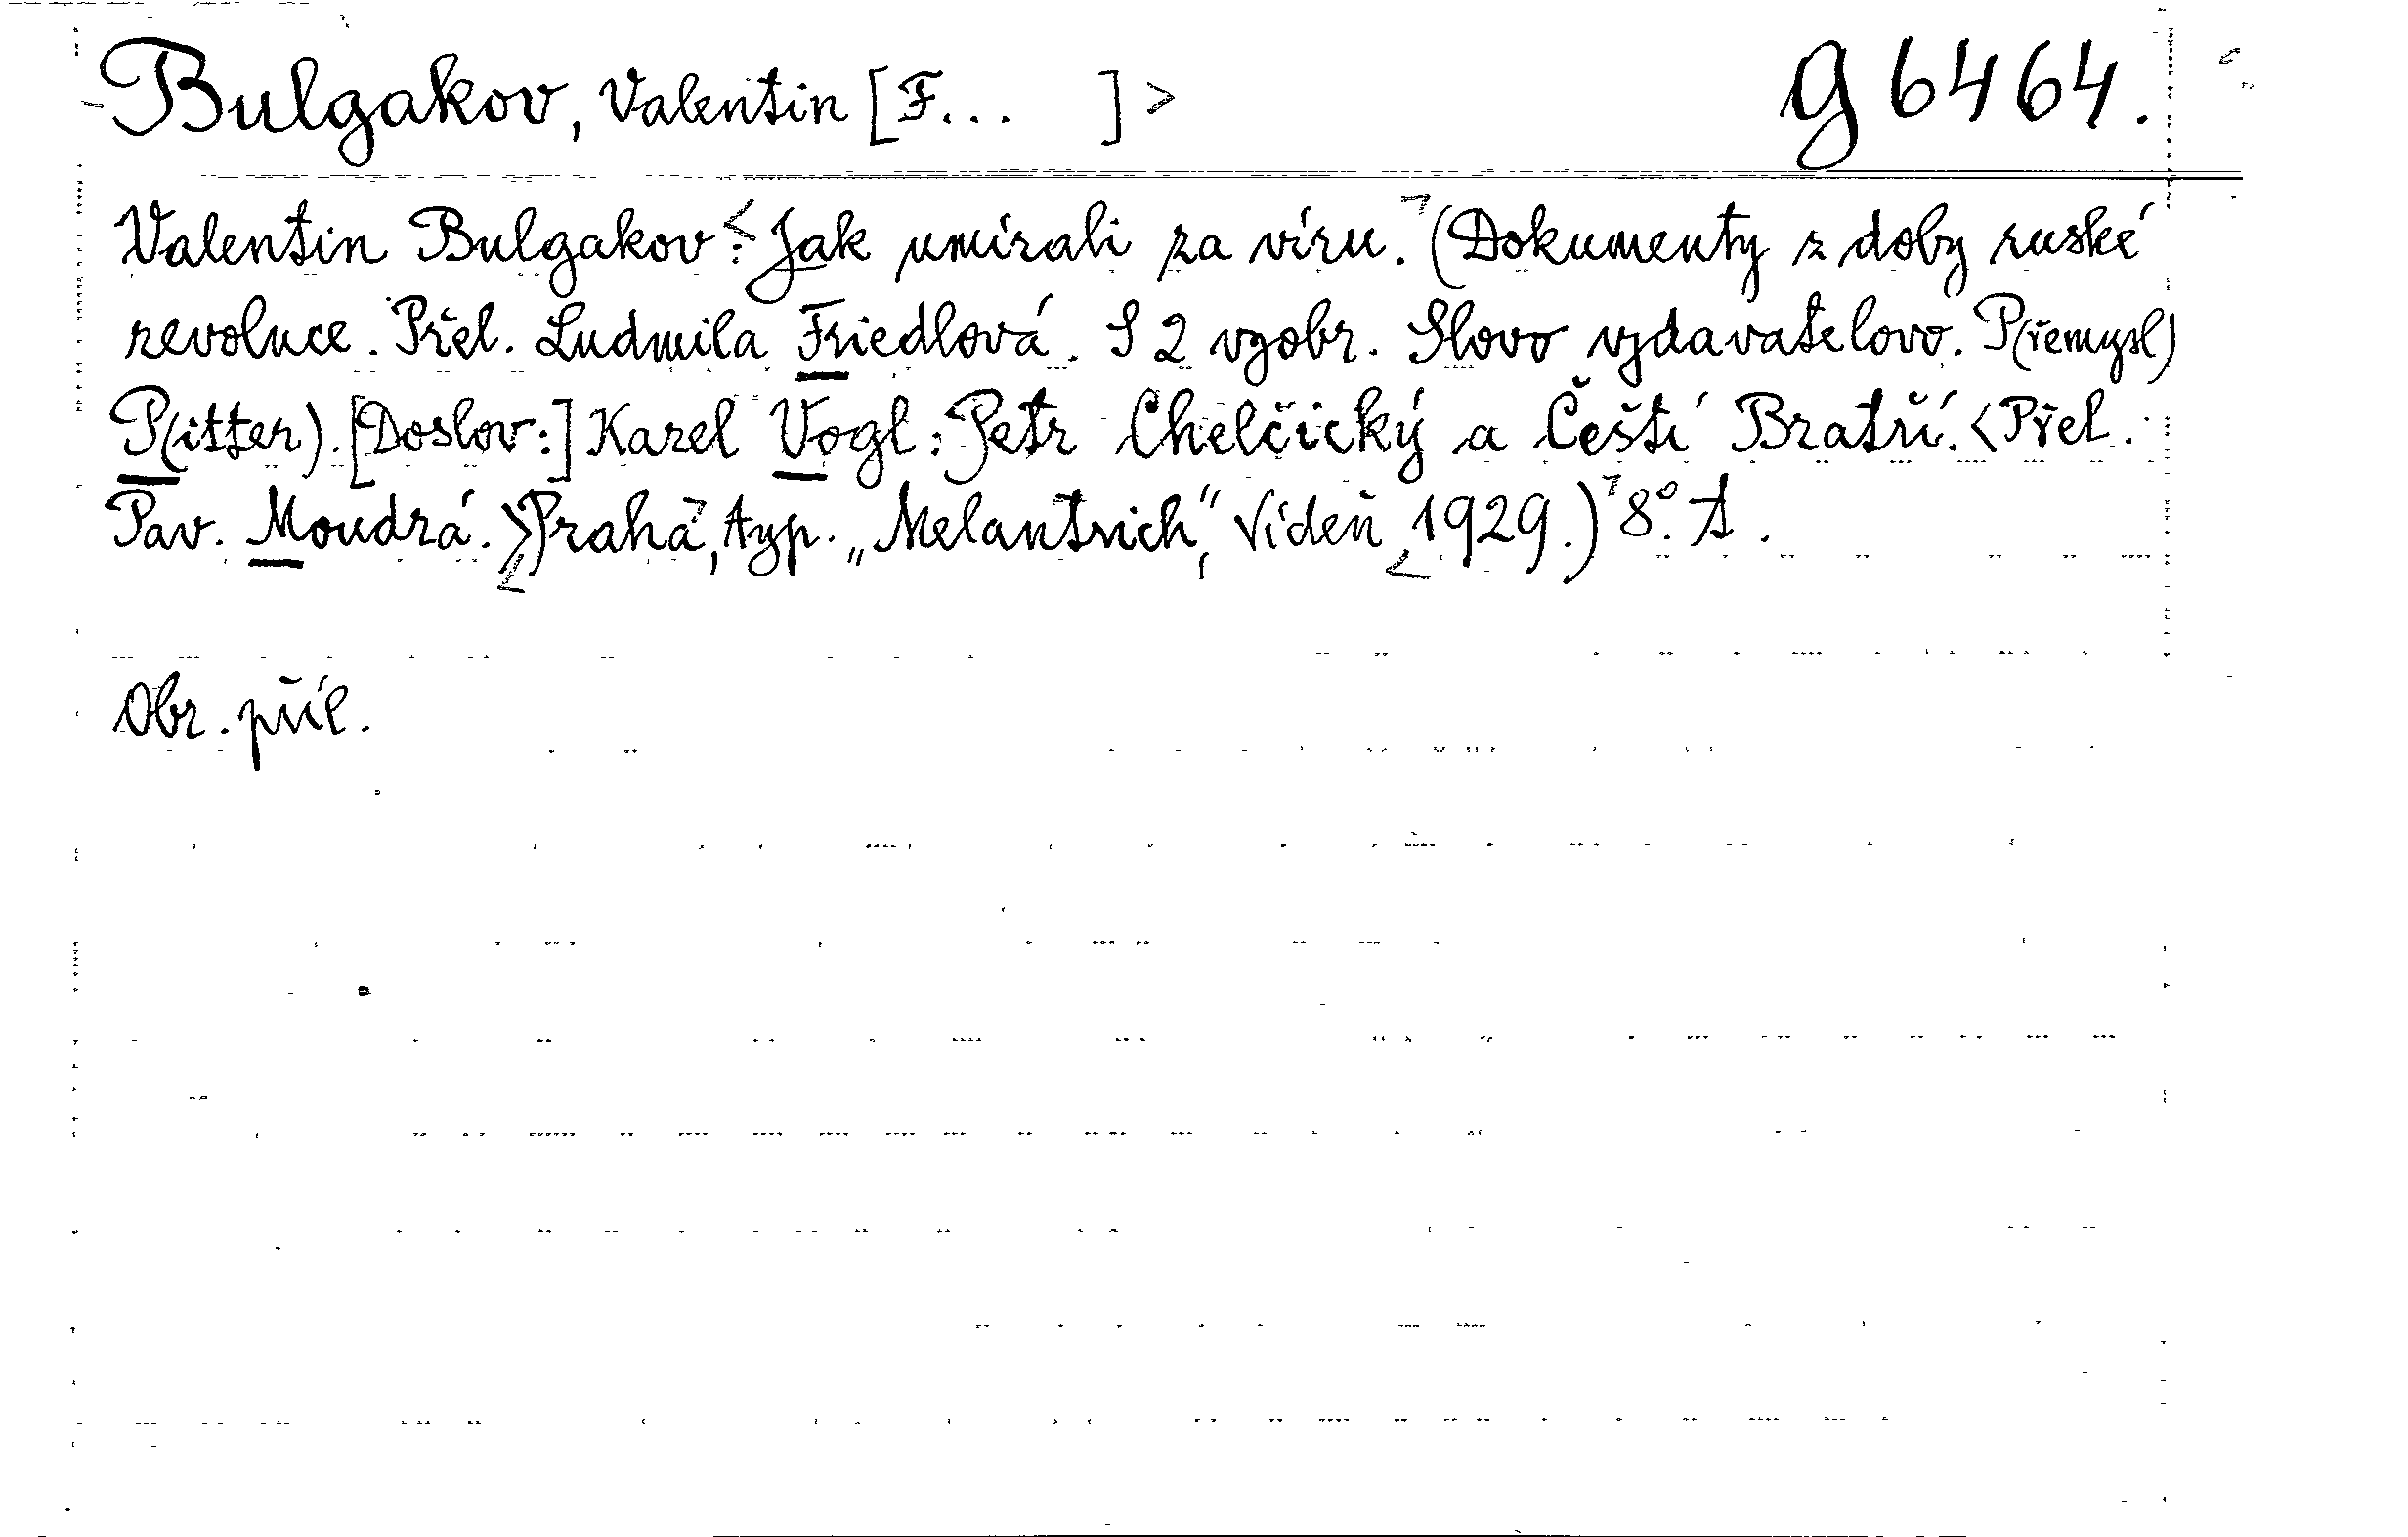 Bulgakov, Valentin [F... ] > g 6464.
Valentin Bulgakov: < Jak umírali za víru. (Dokumenty z doby ruské
revoluce. Přel. Ludmila Friedlová. S 2 vyobr. Slovo vydavatelovo. P(řemysl)
P(itter). [Doslov:] Karel Vogl: Petr Chelčický a Čeští Bratří. <Přel.
Pav. Moudrá.> Praha, typ. „Melantrich“, Vídeň, 1929.) 8°. A.
Obr. příl.